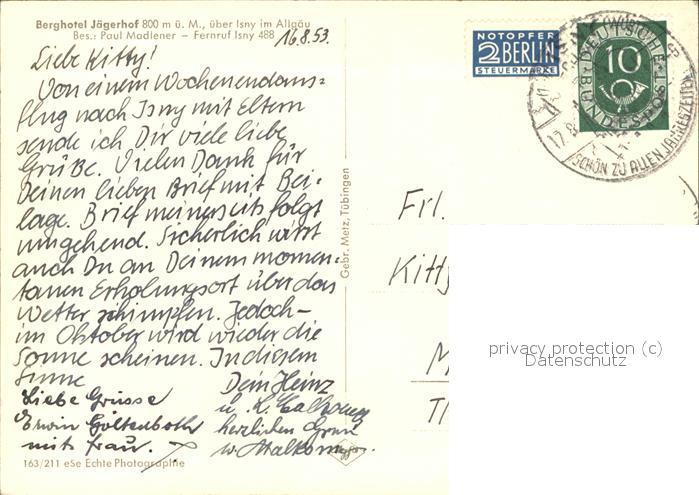 Berghotel Jägerhof 800 m ü. M., über Isny im Allgäu
Bes.: Paul Madlener – Fernruf Isny 488
16.8.53.
Liebe Kitty!
Von einem Wochenendaus=
flug nach Isny mit Eltern
sende ich Dir viele liebe
Grüße. Vielen Dank für
Deinen lieben Brief mit Bei=
lage. Brief meinerseits folgt
umgehend. Sicherlich wirst
auch Du an Deinem momen=
tanen Erholungsort über das
Wetter schimpfen. Jedoch –
im Oktober wird wieder die
Sonne scheinen. In diesem
Sinne
Dein Heinz
Liebe Grüsse
Erwin Göltenboth
mit Frau.
herzlichen Gruß
163/211 eSe Echte Photographie
Gebr. Metz, Tübingen
NOTOPFER
2 BERLIN
STEUERMARKE
DEUTSCHE
10
BUNDESPOST
SCHÖN ZU ALLEN JAHRESZEITEN
Frl.
Kitty
M
T
privacy protection (c)
Datenschutz